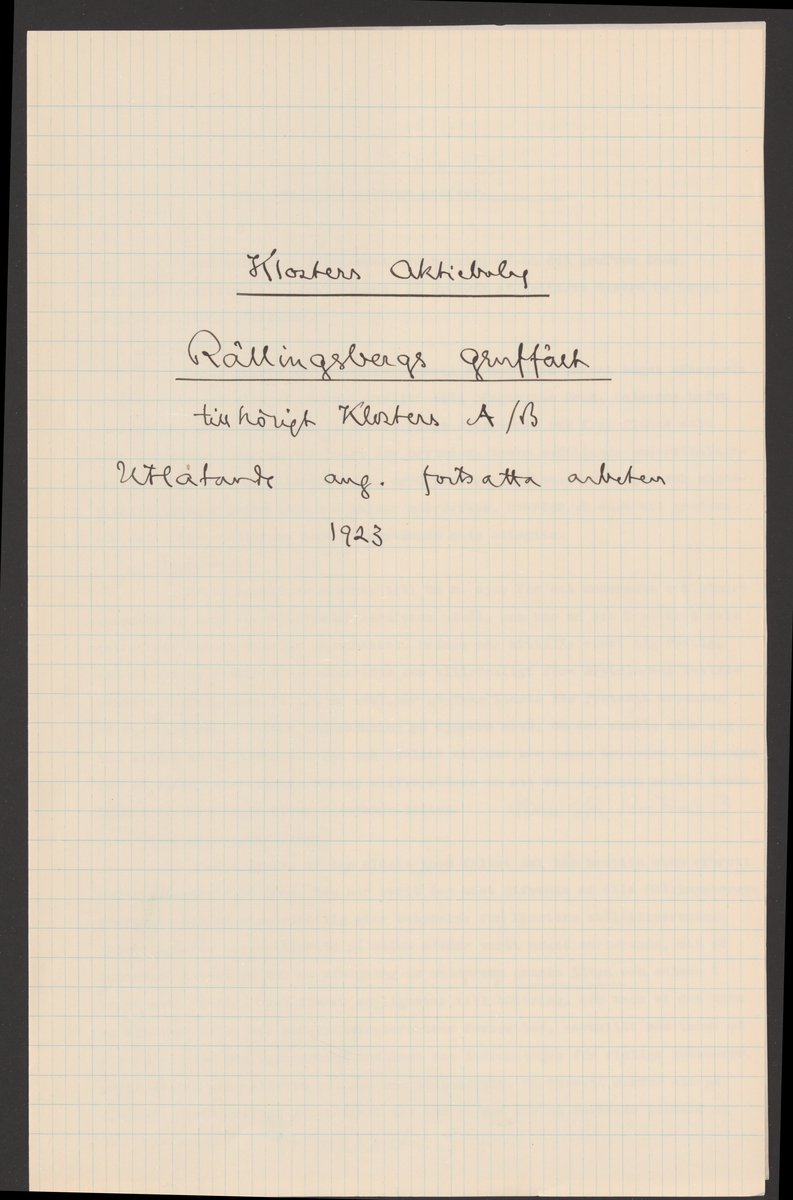 Klosters Aktiebolag
Rällingsbergs gruffält
tillhörigt Klosters A/B
Utlåtande ang. fortsatta arbeten
1923